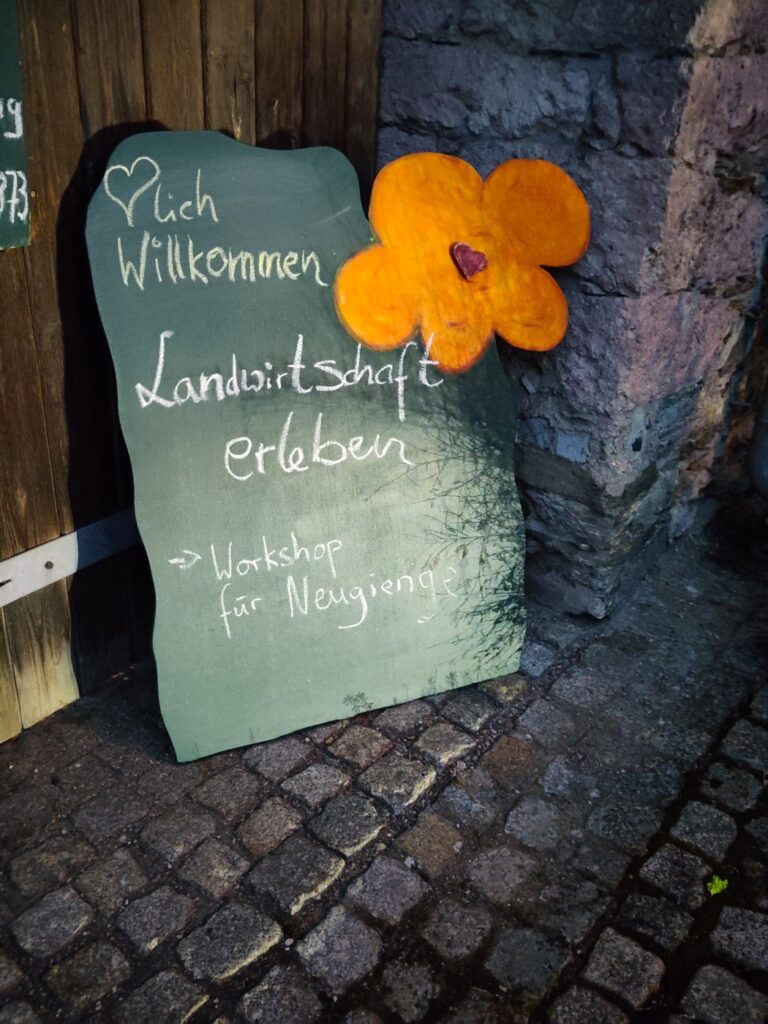 ♡lich
Willkommen
Landwirtschaft
erleben
→ Workshop
für Neugierige
373